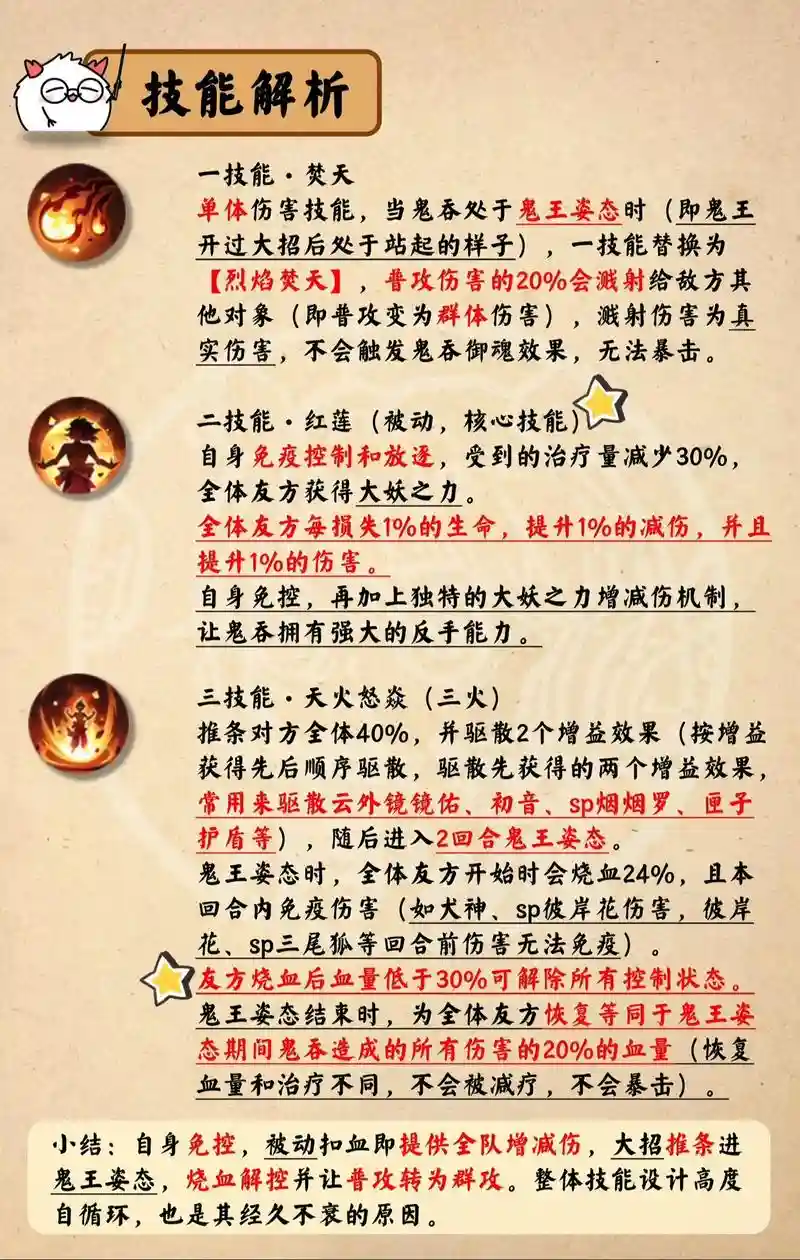 技能解析
一技能·焚天
单体伤害技能，当鬼吞处于鬼王姿态时（即鬼王
开过大招后处于站起的样子），一技能替换为
【烈焰焚天】，普攻伤害的20%会溅射给敌方其
他对象（即普攻变为群体伤害），溅射伤害为真
实伤害，不会触发鬼吞御魂效果，无法暴击。
二技能·红莲（被动，核心技能）
自身免疫控制和放逐，受到的治疗量减少30%，
全体友方获得大妖之力。
全体友方每损失1%的生命，提升1%的减伤，并且
提升1%的伤害。
自身免控，再加上独特的大妖之力增减伤机制，
让鬼吞拥有强大的反手能力。
三技能·天火怒焱（三火）
推条对方全体40%，并驱散2个增益效果（按增益
获得先后顺序驱散，驱散先获得的两个增益效果，
常用来驱散云外镜镜佑、初音、sp烟烟罗、匣子
护盾等），随后进入2回合鬼王姿态。
鬼王姿态时，全体友方开始时会烧血24%，且本
回合内免疫伤害（如犬神、sp彼岸花伤害，彼岸
花、sp三尾狐等回合前伤害无法免疫）。
友方烧血后血量低于30%可解除所有控制状态。
鬼王姿态结束时，为全体友方恢复等同于鬼王姿
态期间鬼吞造成的所有伤害的20%的血量（恢复
血量和治疗不同，不会被减疗，不会暴击）。
小结：自身免控，被动扣血即提供全队增减伤，大招推条进
鬼王姿态，烧血解控并让普攻转为群攻。整体技能设计高度
自循环，也是其经久不衰的原因。